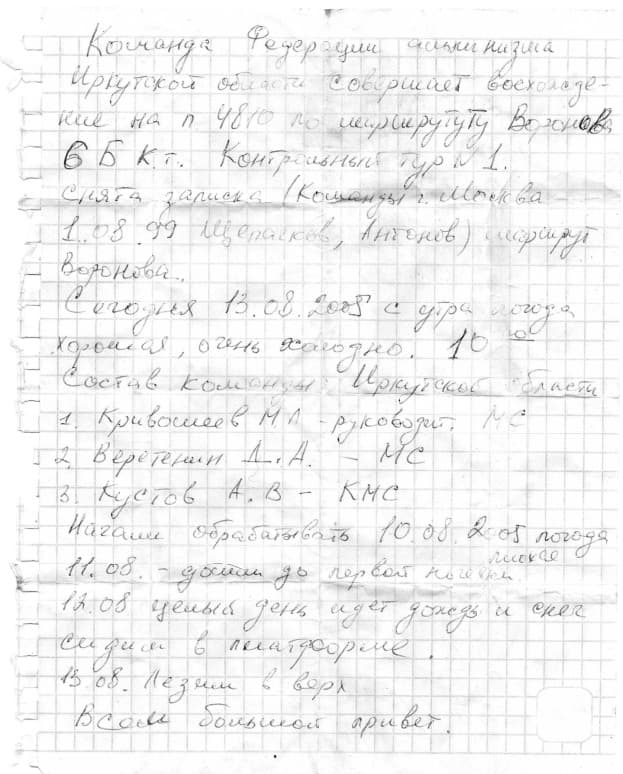 Команда Федерации альпинизма
Иркутской области совершает восхожде-
ние на п. 4810 по маршрутуту Воронова
6 Б к.т. Контрольный тур № 1.
Снята записка (Команды г. Москва
1.08.99 Щепачков, Антонов) маршрут
Воронова.
Сегодня 13.08.2005 с утра погода
хорошая, очень холодно. 10 00
Состав команды Иркутской области
1. Кривошеев М.Л. - руководит. МС
2. Веретенин Д.А. - МС
3. Кустов А.В - КМС
Начали обрабатывать 10.08.2005 погода
плохая
11.08. - дошли до первой ночёвки
12.08 целый день идет дождь и снег
сидим в платформе.
13.08. Лезим в верх
Всем большой привет.